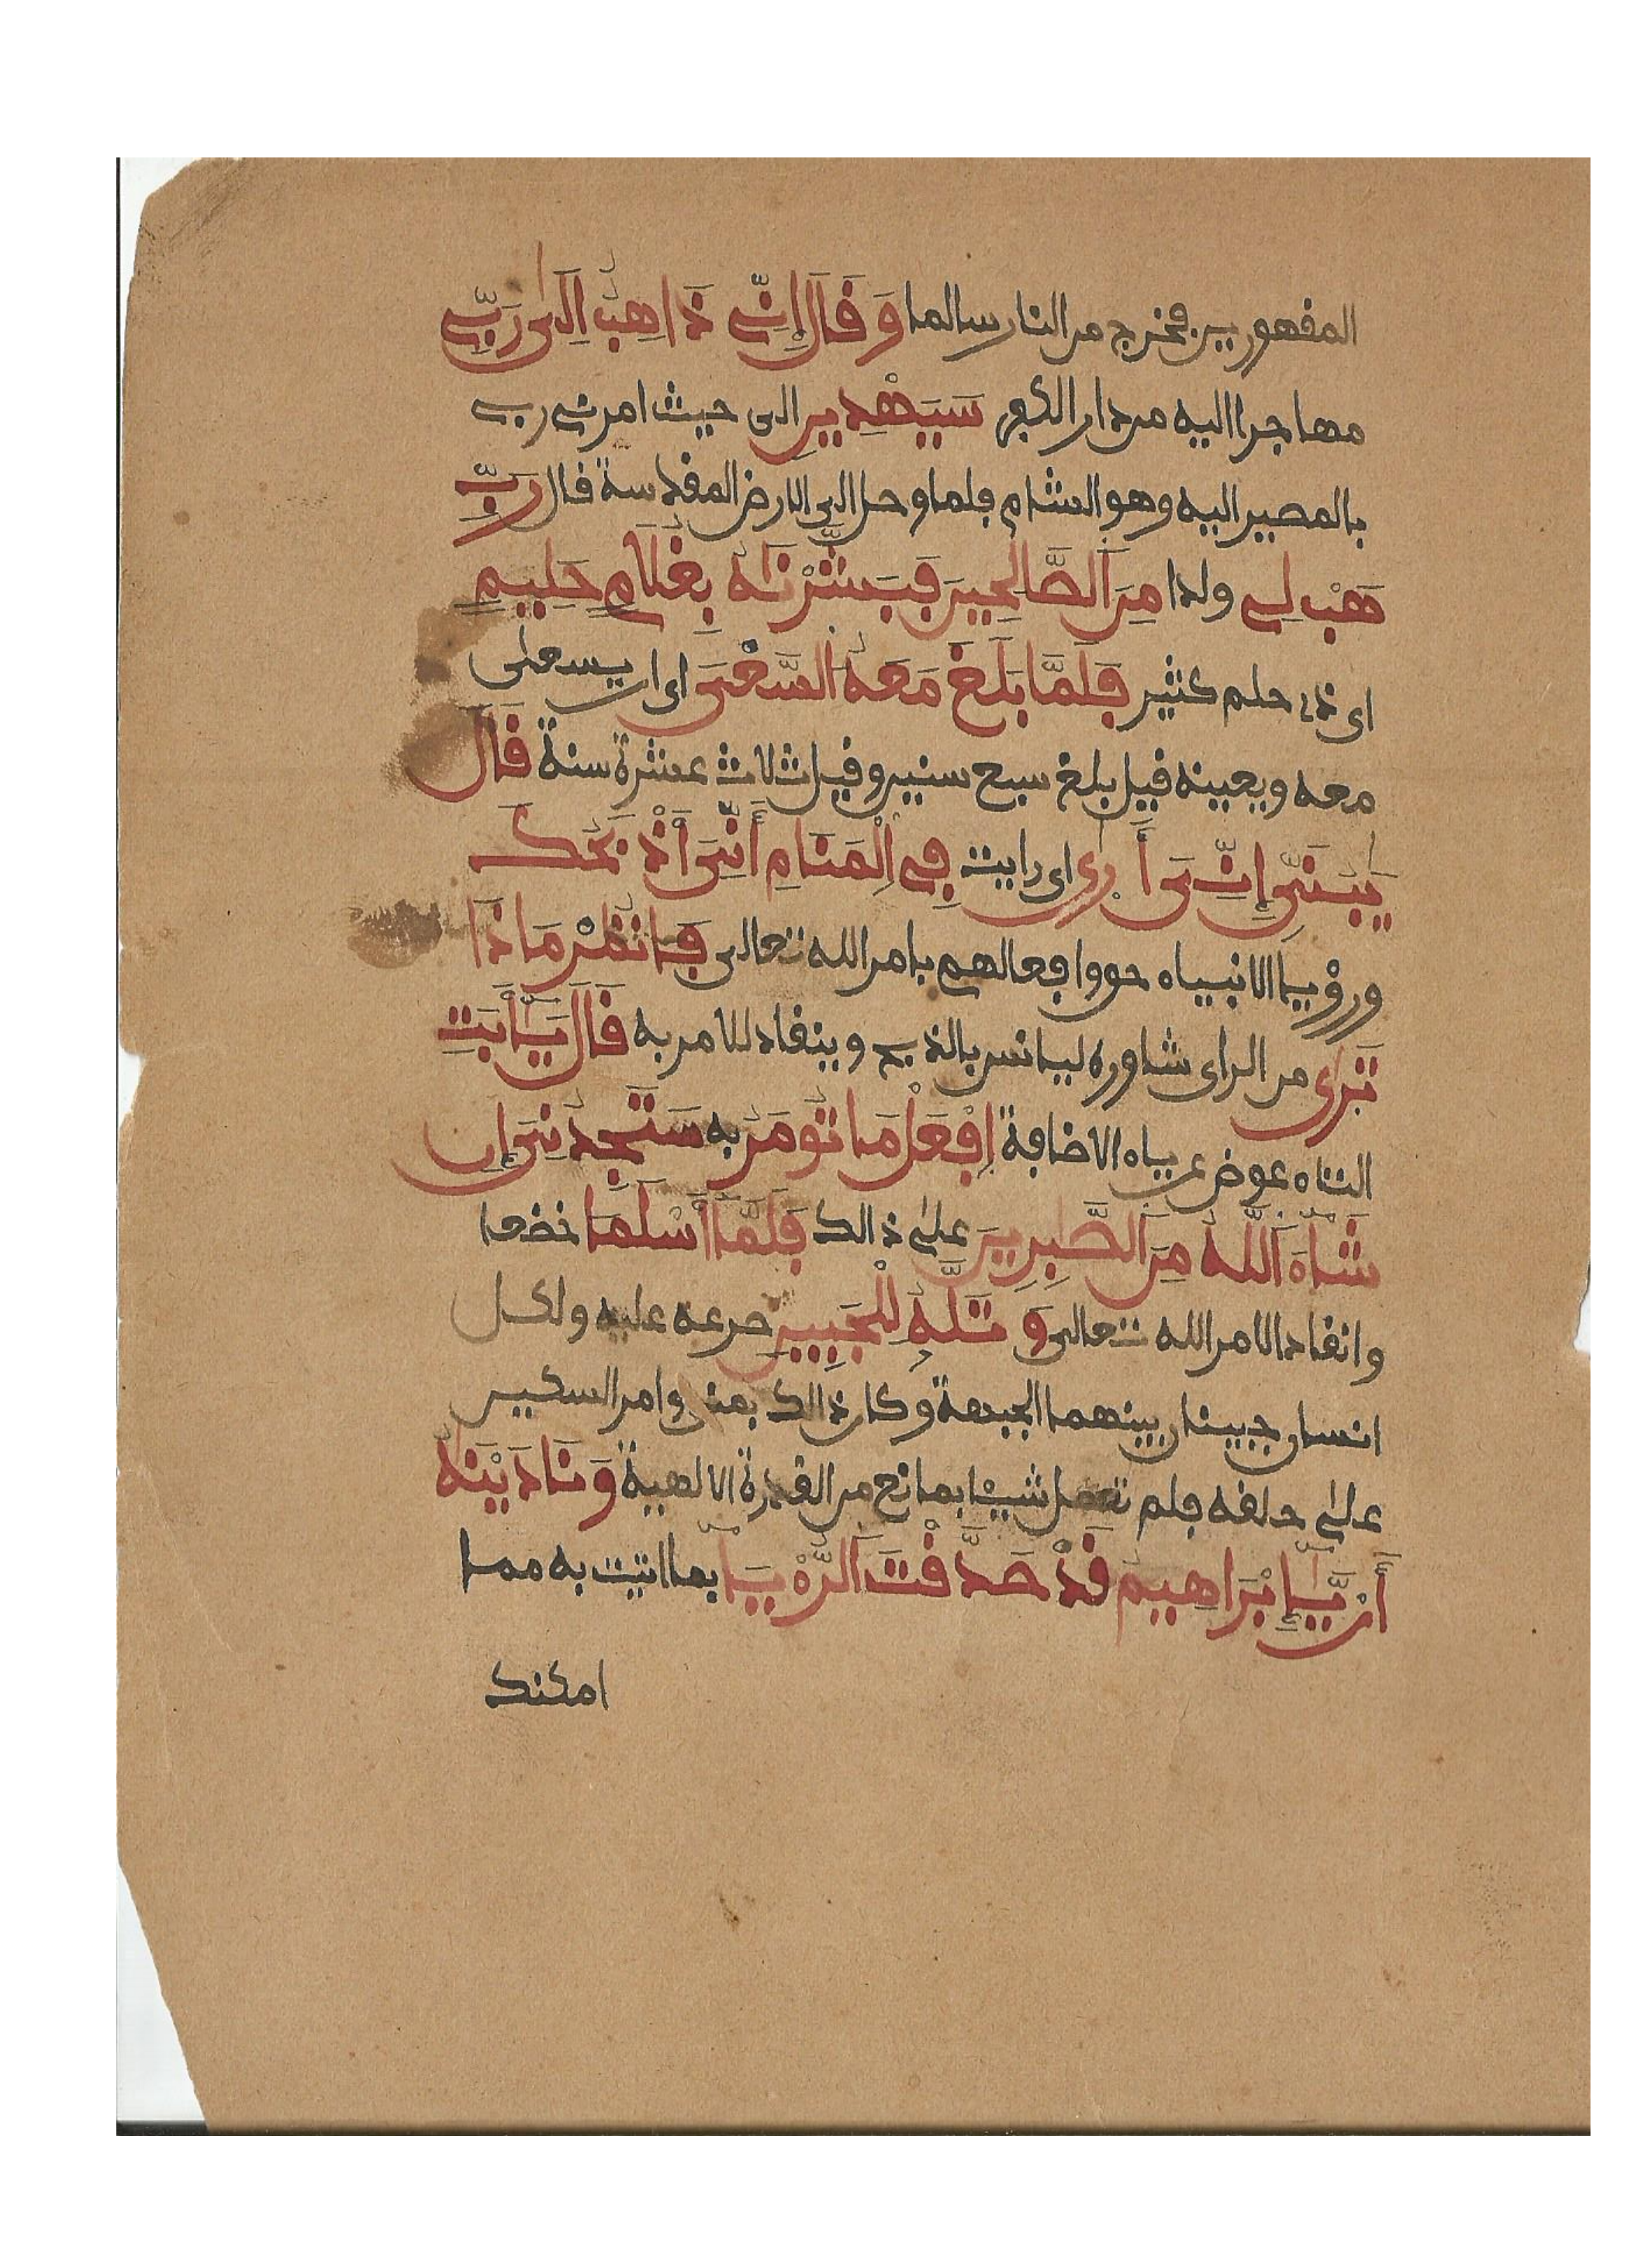 المقهورين فخرج من النار سالما وَقَالَ إِنِّے ذَاهِبٌ اِلَىٰ رَبِّے
مهاجرا اليه من دار الكفر سَيَهْدِينِ الى حيث امرنے ربے
بالمصير اليه وهو الشام فلما وصل الى الارض المقدسة قال رَبِّ
هَبْ لِے ولدا مِنَ اَلصَّالِحِينَ فَبَشَّرْنَٰهُ بِغُلَٰمٍ حَلِيمٍ
اى ذے حلم كثير فَلَمَّا بَلَغَ مَعَهُ اُلسَّعْيَ اى ان يسعى
معه ويعينه قيل بلغ سبع سنين وقيل ثلاث عشرة سنة قَالَ
يَٰبُنَىِّ إِنِّىَ أَرىٰ اى رايت فِے اِلْمَنَامِ أَنِّىَ أَذْبَحُكَ
ورؤْيا الانبياء حق وافعالهم بامر الله تعالى فَانظُرْ مَاذَا
تَرىٰ من الراى شاوره ليانس بالذبح وينقاد للامر به قَالَ يَٰٓأَبَتِ
التاء عوض عن ياء الاضافة اِفْعَلْ مَا تُومَرُ به سَتَجِدُنِىَ إِن
شَآءَ اَللَّهُ مِنَ اَلصَّٰبِرِينَ على ذالك فَلَمَّآ أَسْلَمَا خضعا
وانقادا لامر الله تعالى وَتَلَّهُۥ لِلْجَبِينِ صرعه عليه ولكل
انسان جبينان بينهما الجبهة وكان ذالك بمنى وامر السكين
على حلقه فلم تعمل شيْئا بمانع من القدرة الالهية وَنَادَيْنَٰهُ
أَنْ يَّٰٓإِبْرَاهِيمُ قَدْ صَدَّقْتَ اَلرُّءْيَا بما اتيت به مما
امكنك